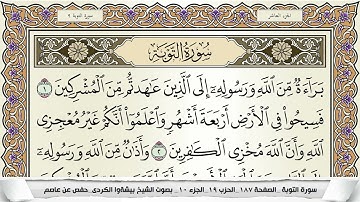 الجزء العاشر
سورة التوبة ٩
سُورَةُ التَّوْبَةِ
بَرَآءَةٌ مِّنَ ٱللَّهِ وَرَسُولِهِۦٓ إِلَى ٱلَّذِينَ عَٰهَدتُّم مِّنَ ٱلْمُشْرِكِينَ ١
فَسِيحُوا۟ فِى ٱلْأَرْضِ أَرْبَعَةَ أَشْهُرٍ وَٱعْلَمُوٓا۟ أَنَّكُمْ غَيْرُ مُعْجِزِى
ٱللَّهِ وَأَنَّ ٱللَّهَ مُخْزِى ٱلْكَٰفِرِينَ ٢ وَأَذَٰنٌ مِّنَ ٱللَّهِ وَرَسُولِهِۦٓ
سورة التوبة_ الصفحة ١٨٧_ الحزب ١٩_ الجزء ١٠_ بصوت الشيخ بيشةوا الكردى_ حفص عن عاصم